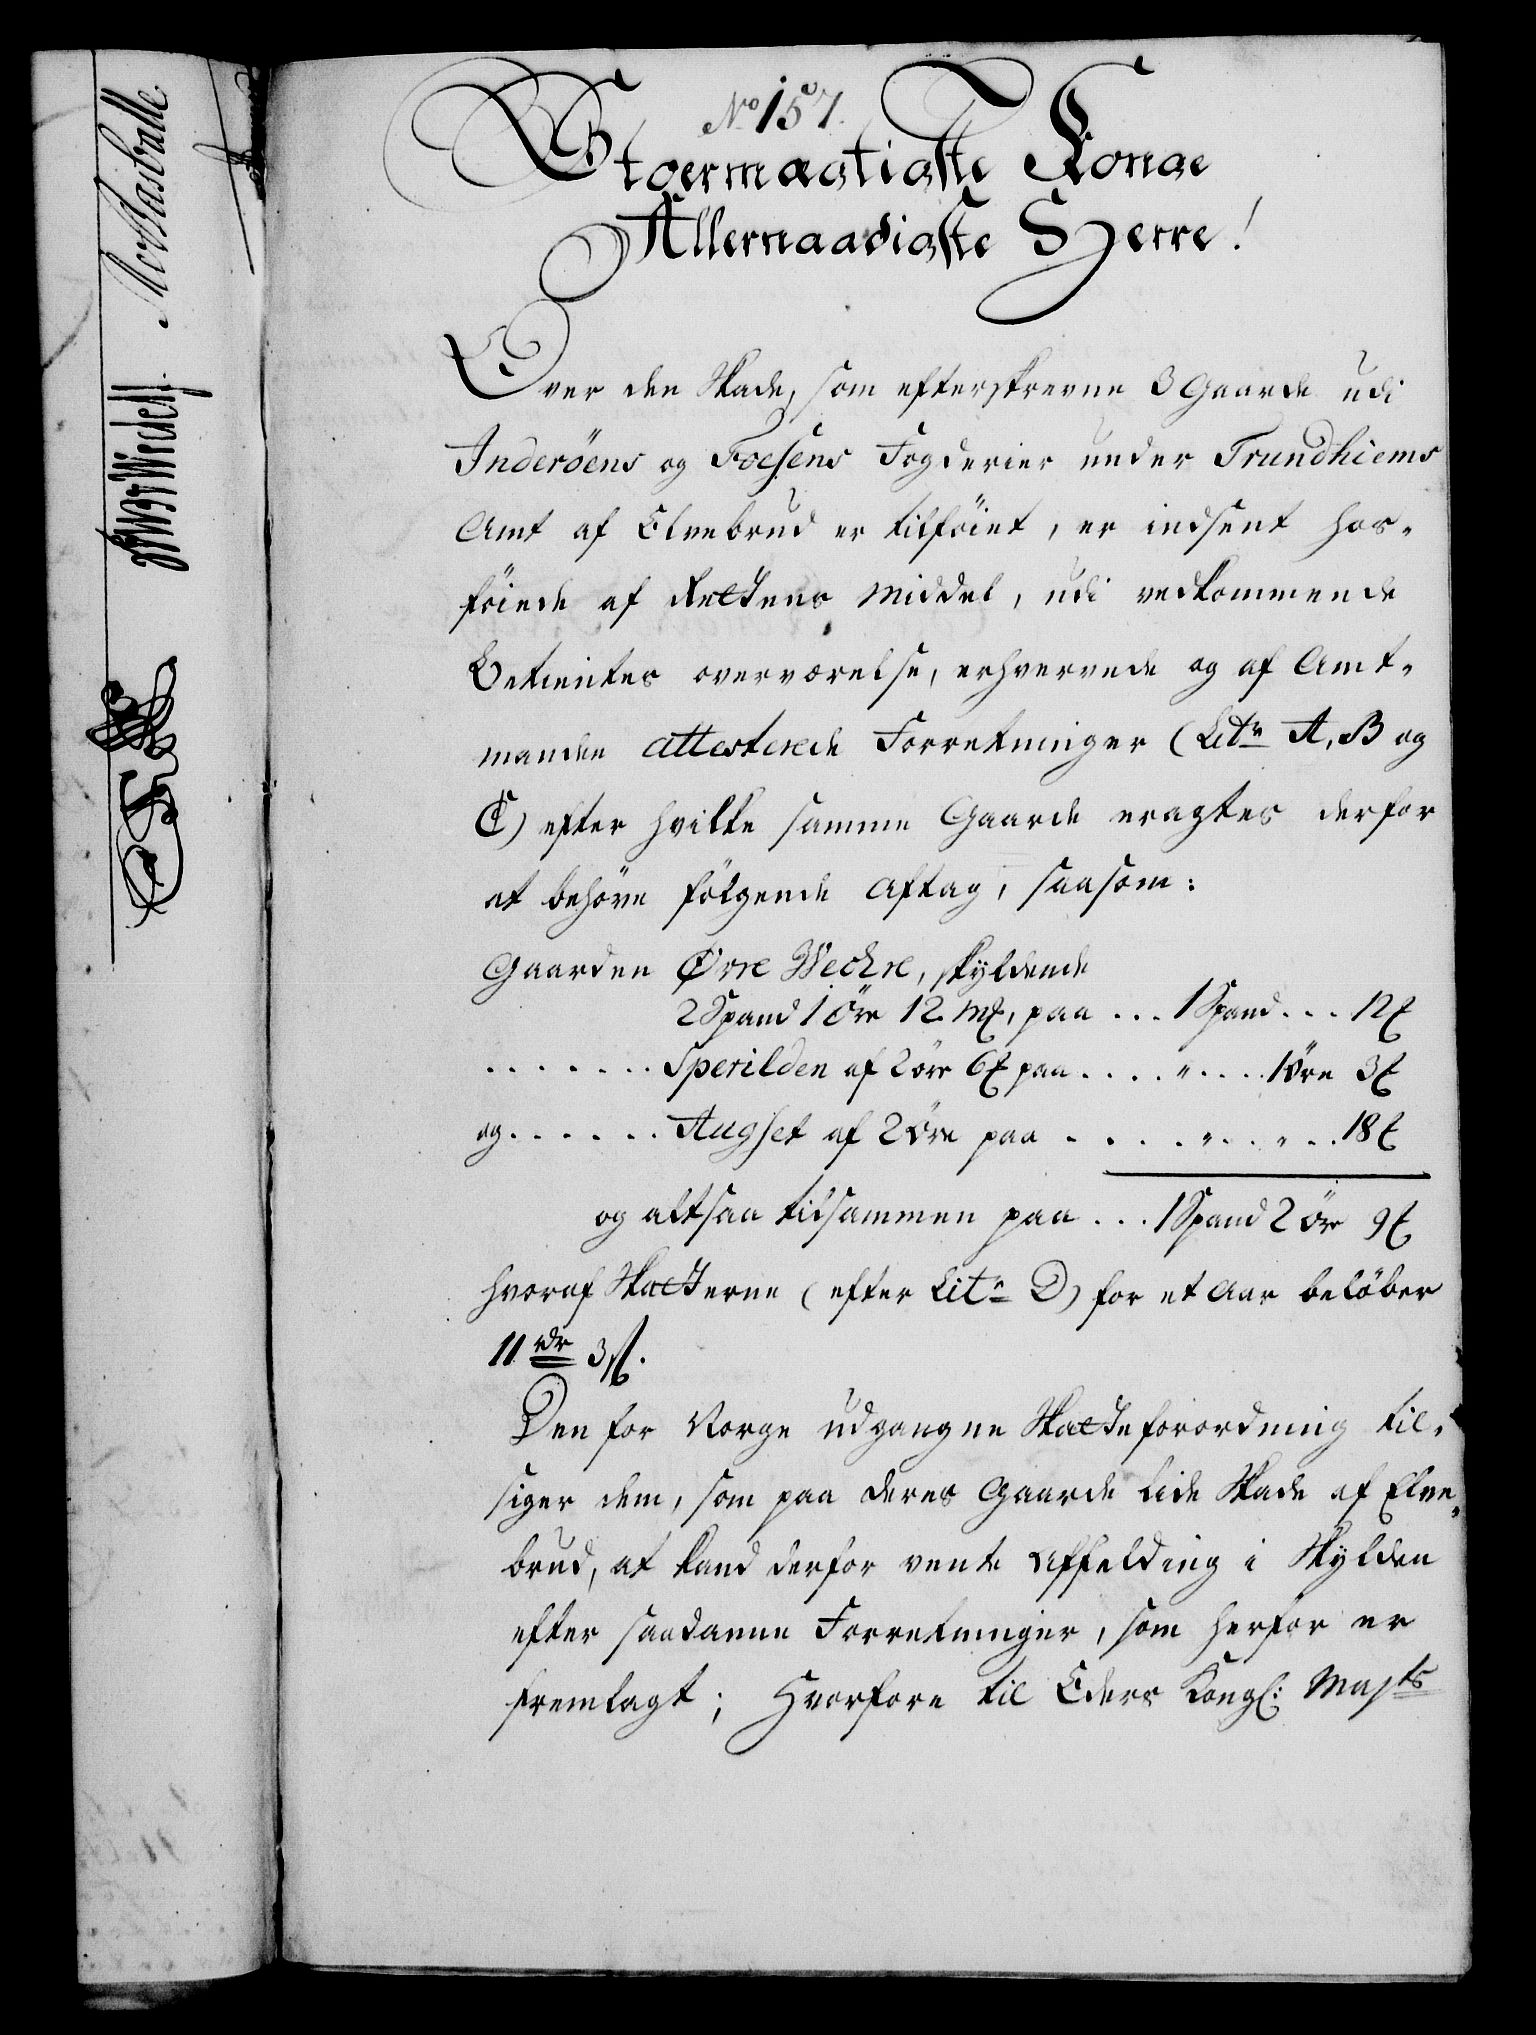 No 157.
Stoermægtigste Konge
Allernaadigste Herre!
Over den Skade, som efterskrevne 3 Gaarde udi
Inderöens og Foesens Fogderier under Trundhiems
Amt af Elvebrud er tilföiet, er indsent hos-
föiede af Rettens Middel, udi vedkommende
Betientes overværelse, erhvervede og af Amt-
manden attesterede Forretninger (Litr A, B og
C) efter hvilke samme Gaarde eragtes derfor
at behöve fölgende Aftag, saasom:
Gaarden Øvre Wechre, skyldende
2 Spand 1 Öre 12 m℔, paa ... 1 Spand ... 12 ℔
....... Sperilden af 2 öre 6 ℔ paa .... " .... 1 Öre 3 ℔
og ...... Augset af 2 Öre paa ..... " .. " .. 18 ℔
og altsaa tilsammen paa ... 1 Spand 2 Öre 9 ℔
hvoraf Skatterne (efter Litr D) for et Aar belöber
11 rdr 3 ß.
Den for Norge udgangne Skatteforordning til-
siger dem, som paa deres Gaarde lide Skade af Elve-
brud, at kand derfor vente Affelding i Skylden
efter saadanne Forretninger, som herfor er
fremlagt; Hvorfore til Eders Kongl: Majts